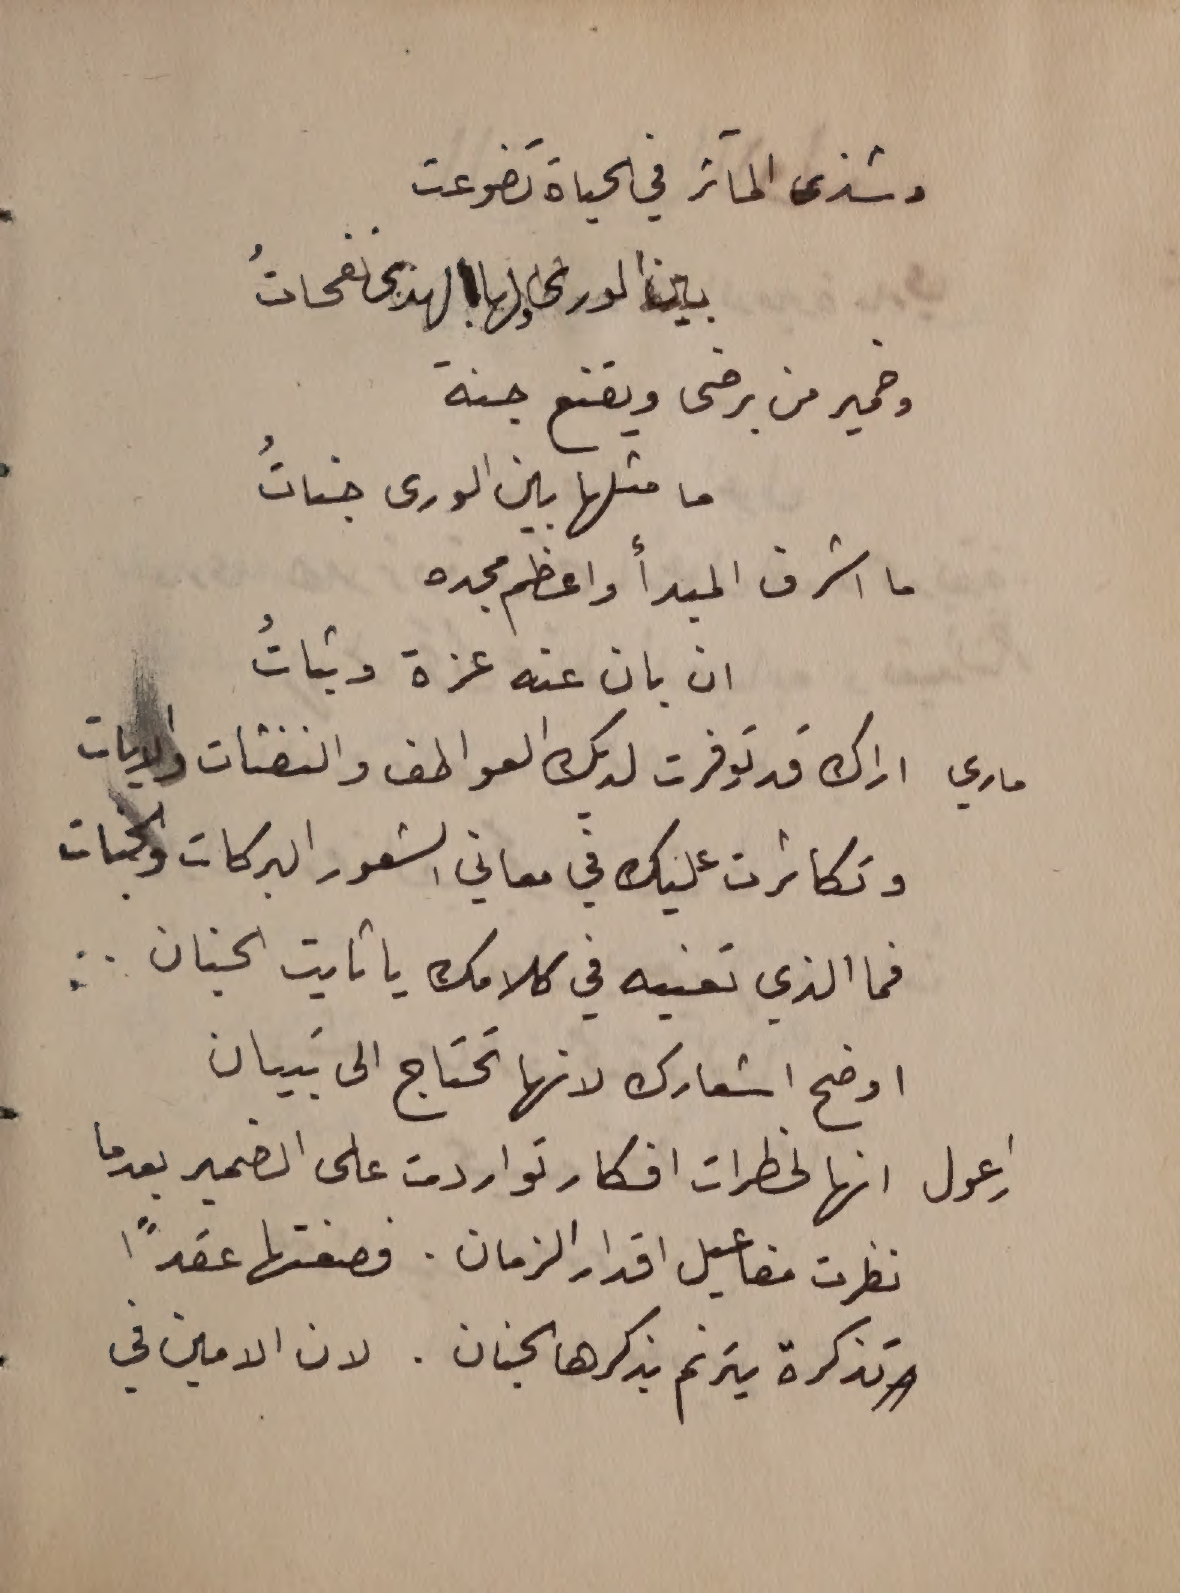 وشذى المآثر في الحياة تَضوعت
بين الورى ولها الهدى نفحاتُ
وضمير من يرضى ويقنع جنة
ما مثلها بين الورى جناتُ
ما اشرف المبدأ واعظم مجده
ان بان عنه عزة وثباتُ
ماري اراك قد توفرت لديك العواطف والنفثات والايات
وتكاثرت عليك في معاني الشعور البركات والخبات
فما الذي تعنيه في كلامك يا ثابت الجنان . . :
اوضح اشعارك لانها تحتاج الى تبيان
ارعول انها لخطرات افكار تواردت على الضمير بعدما
نظرت مفاعيل اقدار الزمان . فصغتها عقداً
تذكرة يترنم بذكرها الجنان . لان الامين في